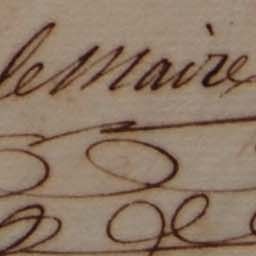 le Maire